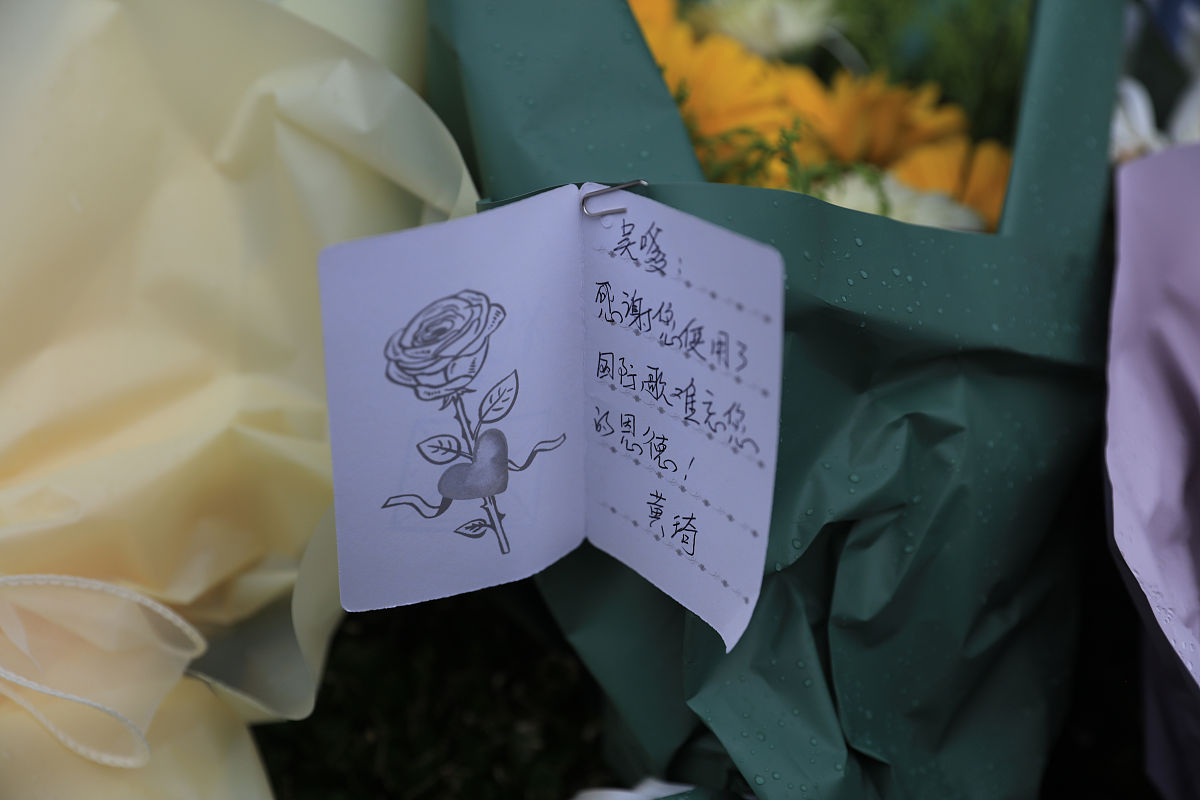 吴嗳:
感谢您使用了
国际歌难忘您
的恩德!
黄琦